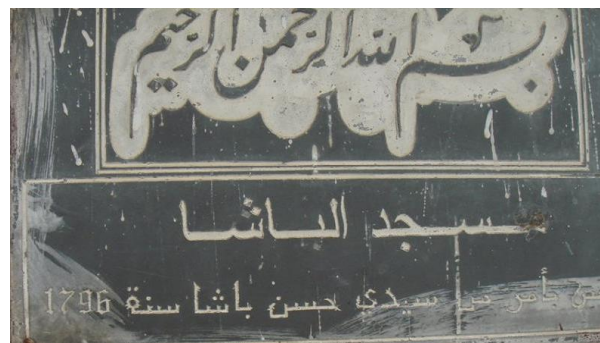 بسم الله الرحمن الرحيم
مسجد الباشا
بأمر من سيدي حسن باشا سنة 1796